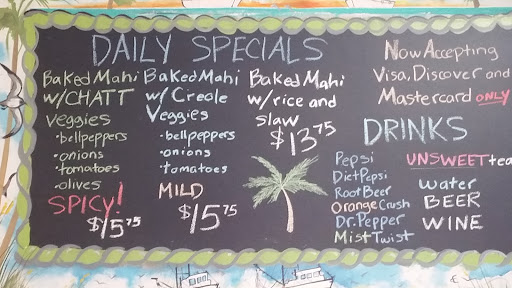 DAILY SPECIALS
Baked Mahi
w/CHATT
Veggies
•bellpeppers
•onions
•tomatoes
•olives
SPICY!
$15.75
Baked Mahi
w/ Creole
Veggies
•bellpeppers
•onions
•tomatoes
MILD
$15.75
Baked Mahi
w/rice and
slaw
$13.75
Now Accepting
Visa, Discover and
Mastercard ONLY
DRINKS
Pepsi
Diet Pepsi
Root Beer
Orange Crush
Dr. Pepper
Mist Twist
UNSWEET tea
water
BEER
WINE